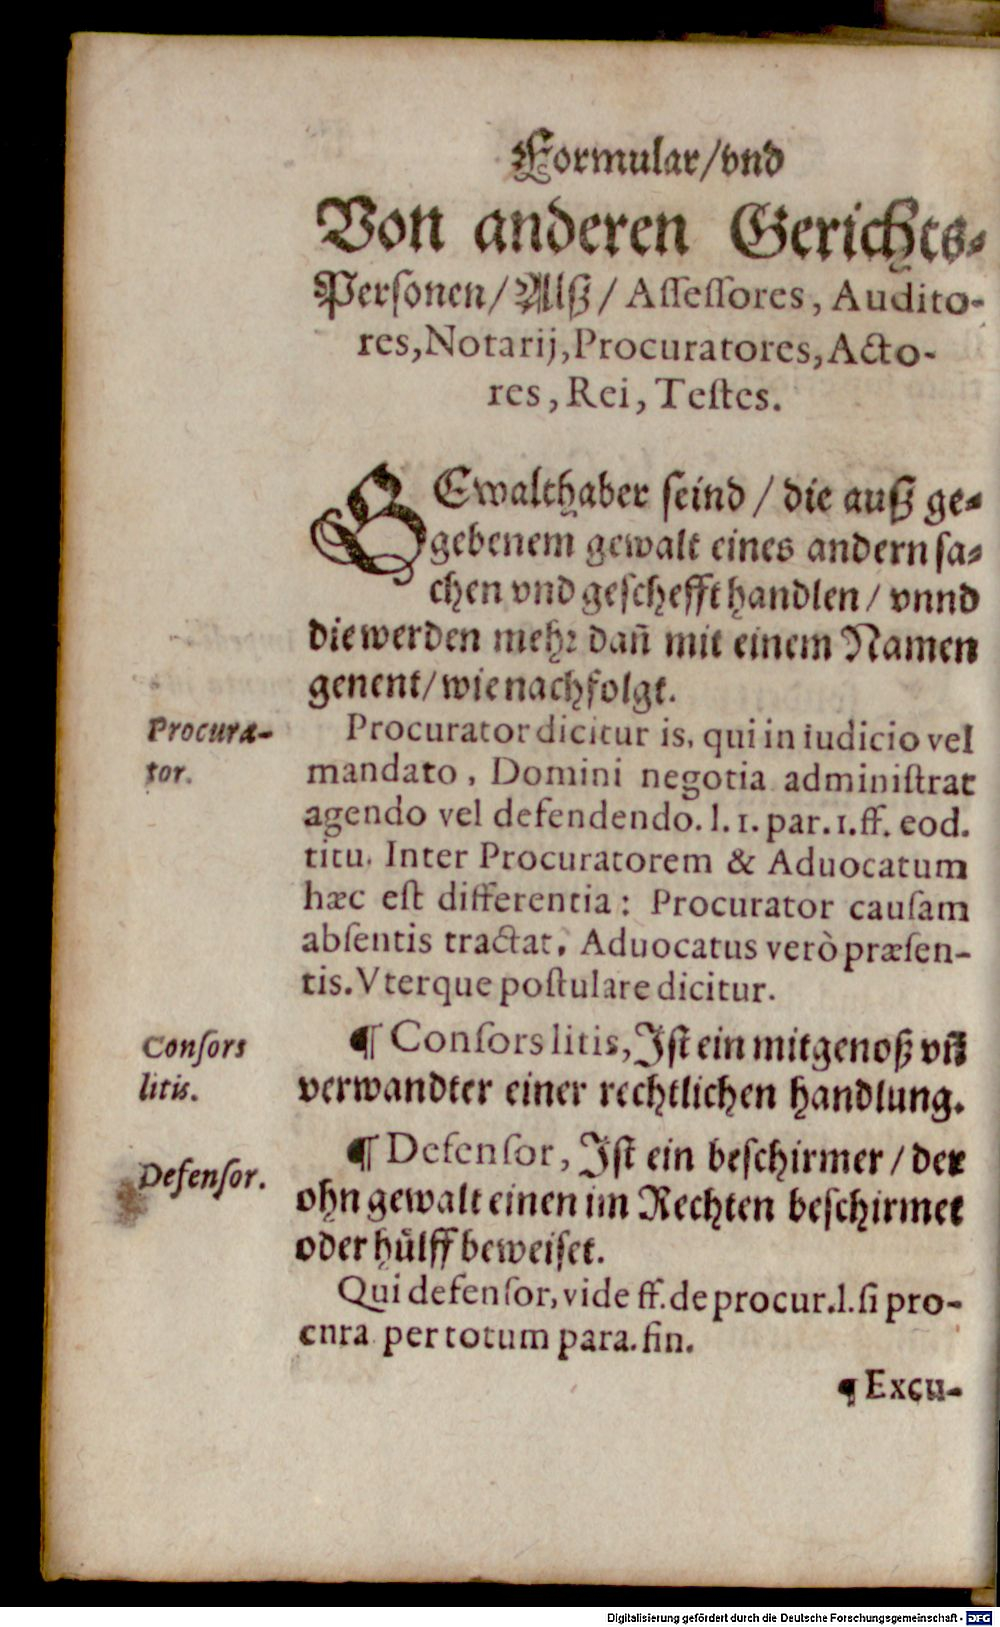 Formular/vnd
Von anderen Gerichts-
Personen/Alß/Aſſeſſores, Audito-
res, Notarij, Procuratores, Acto-
res, Rei, Teſtes.
GEwalthaber ſeind/die auß ge-
gebenem gewalt eines andern ſa-
chen vnd geſchefft handlen/vnnd
die werden mehr dañ mit einem Namen
genent/wie nachfolgt.
Procura-
tor.
Procurator dicitur is, qui in iudicio vel
mandato, Domini negotia adminiſtrat
agendo vel defendendo. l. 1. par. 1. ff. eod.
titu. Inter Procuratorem & Aduocatum
hæc eſt differentia: Procurator cauſam
abſentis tractat, Aduocatus verò præſen-
tis. Vterque poſtulare dicitur.
Conſors
litis.
¶ Conſors litis, Iſt ein mitgenoß vñ
verwandter einer rechtlichen handlung.
Defenſor.
¶ Defenſor, Iſt ein beſchirmer/der
ohn gewalt einen im Rechten beſchirmet
oder hülff beweiſet.
Qui defenſor, vide ff. de procur. l. ſi pro-
cura per totum para. fin.
¶ Excu-
Digitalisierung gefördert durch die Deutsche Forschungsgemeinschaft - DFG